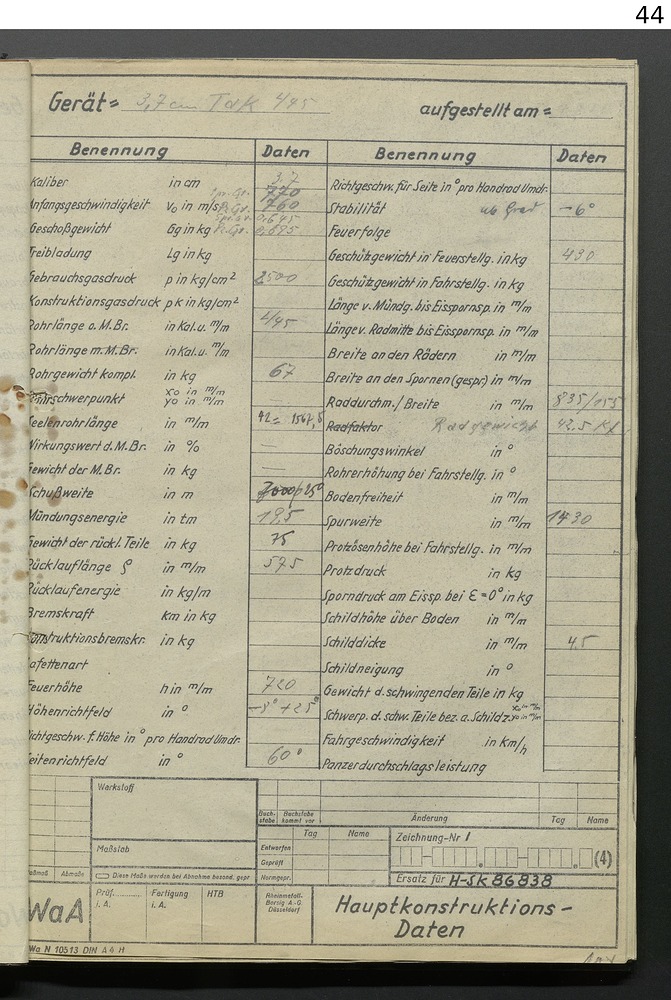 44
Gerät= 3,7 cm TAK L/45 aufgestellt am =
Benennung Daten Benennung Daten
Kaliber in cm 3.7 Richtgeschw. für Seite in ° pro Handrad Umdr.
Anfangsgeschwindigkeit v₀ in m/s Spr.Gr. 770 P.Gr. 760 Stabilität -6°
Geschoßgewicht Gg in kg Spr.Gr. 0,645 P.Gr. 0,695 Feuerfolge
Treibladung Lg in kg Geschützgewicht in Feuerstellg. in kg 430
Gebrauchsgasdruck p in kg/cm² 2500 Geschützgewicht in Fahrstellg. in kg
Konstruktionsgasdruck pk in kg/cm² Länge v. Mündg. bis Eisspornsp. in m/m
Rohrlänge o. M. Br. in Kal. u. m/m L/45 Länge v. Radmitte bis Eisspornsp. in m/m
Rohrlänge m. M. Br. in Kal. u. m/m Breite an den Rädern in m/m
Rohrgewicht kompl. in kg 67 Breite an den Spornen (gespr) in m/m
Rohrschwerpunkt xo in m/m yo in m/m Raddurchm. / Breite in m/m 835/155
Seelenrohrlänge in m/m 42= 1567,5 Radfaktor Radgewicht 42.5 Kg
Wirkungswert d. M. Br. in % Böschungswinkel in °
Gewicht der M. Br. in kg Rohrerhöhung bei Fahrstellg. in °
Schußweite in m Bodenfreiheit in m/m
Mündungsenergie in tm 19,5 Spurweite in m/m 1430
Gewicht der rückl. Teile in kg 75 Protzösenhöhe bei Fahrstellg. in m/m
Rücklauflänge ϱ in m/m 595 Protzdruck in kg
Rücklaufenergie in kg/m Sporndruck am Eissp. bei ε=0° in kg
Bremskraft km in kg Schildhöhe über Boden in m/m
Konstruktionsbremskr. in kg Schilddicke in m/m 4.5
Lafettenart Schildneigung in °
Feuerhöhe h in m/m 720 Gewicht d. schwingenden Teile in kg
Höhenrichtfeld in ° -8° +25° Schwerp. d. schw. Teile bez. a. Schildz. xo in m/m yo in m/m
Richtgeschw. f. Höhe in ° pro Handrad Umdr. Fahrgeschwindigkeit in km/h
Seitenrichtfeld in ° 60° Panzerdurchschlagsleistung
Werkstoff
Buchstabe Buchstabe kommt vor Änderung Tag Name
Tag Name Zeichnung-Nr
Maßstab Entworfen
Geprüft (4)
Abmaße Diese Maße werden bei Abnahme besond. gepr Normgepr. Ersatz für H-SK 86838
WaA Prüf. i. A. Fertigung i. A. HTB Rheinmetall-Borsig A-G. Düsseldorf Hauptkonstruktions-
Daten
Wa N 10513 DIN A 4 H